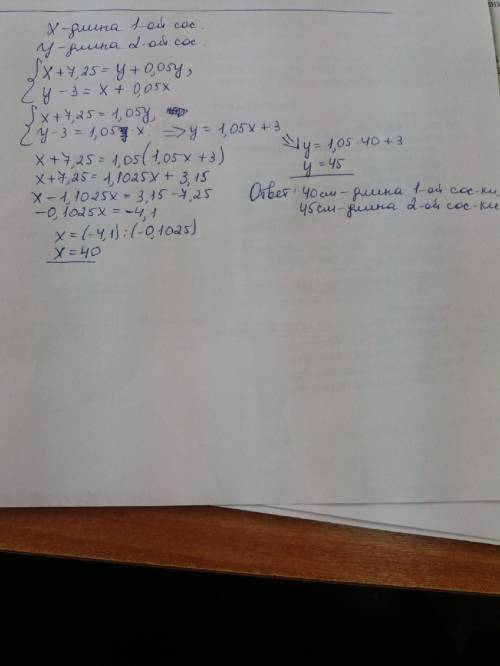 x-длина 1-ой сос.
y-длина 2-ой сос.
{ x+7,25 = y+0,05y,
y-3 = x+0,05x.
{ x+7,25 = 1,05y,
y-3 = 1,05 x. => y = 1,05x+3
x+7,25 = 1,05(1,05x+3)
x+7,25 = 1,1025x + 3,15
x-1,1025x = 3,15-7,25
-0,1025x = -4,1
x = (-4,1):(-0,1025)
x = 40
=> y = 1,05·40+3
y = 45
Ответ: 40см-длина 1-ой сос-ки,
45см-длина 2-ой сос-ки